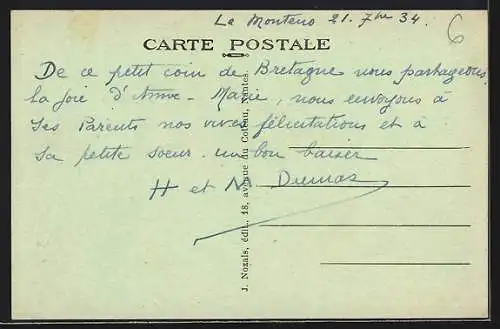 Le Monteno 21. 7bre 34.
6
CARTE POSTALE
De ce petit coin de Bretagne nous partageons
la joie d'Anne-Marie, nous envoyons à
ses Parents nos vives félicitations et à
sa petite soeur un bon baiser
H et M Dumas
J. Nozais, édit., 18, avenue du Coteau, Nantes.